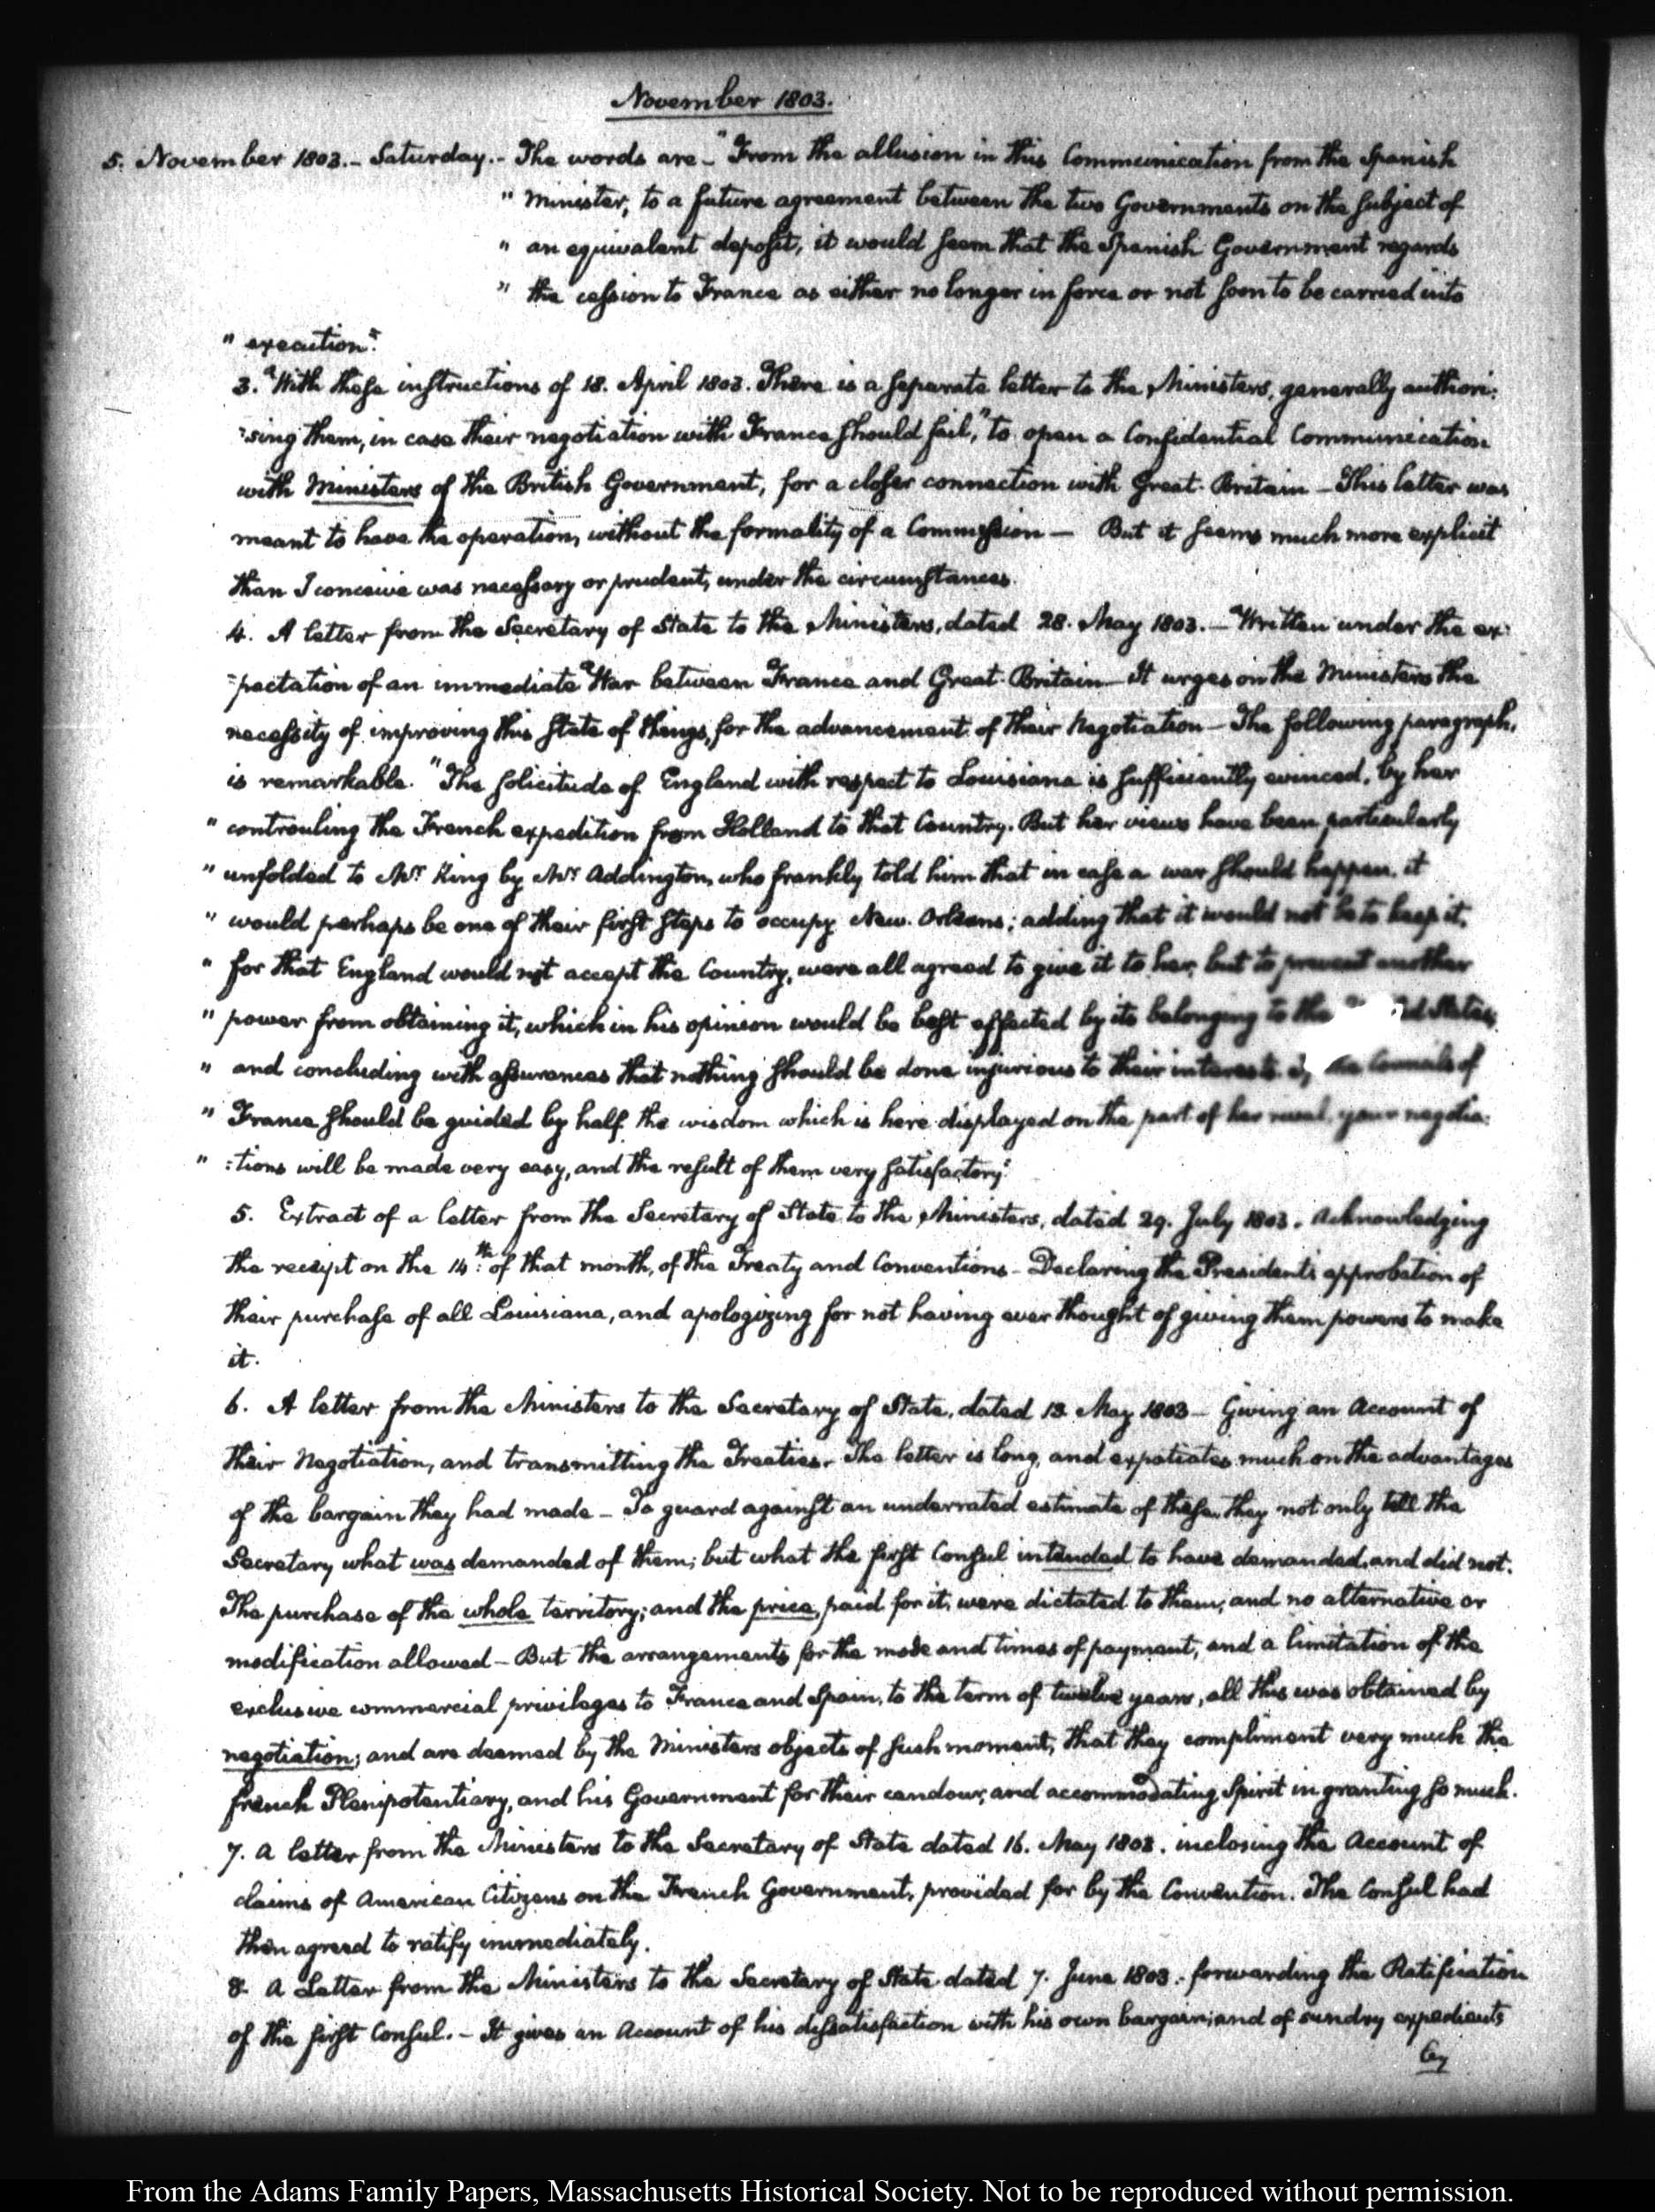 November 1803.
5. November 1803.- Saturday.- The words are - "From the allusion in this Communication from the Spanish
" Minister, to a future agreement between the two Governments on the subject of
" an equivalent deposit, it would seem that the Spanish Government regards
" the cession to France as either no longer in force or not soon to be carried into
" execution".
3. With these instructions of 18. April 1803. There is a separate letter to the Ministers, generally authori:
:sing them, in case their negotiation with France should fail, "to open a Confidential Communication
with Ministers of the British Government, for a closer connection with Great-Britain - This letter was
meant to have the operation, without the formality of a Commission - But it seems much more explicit
than I conceive was necessary or prudent, under the circumstances.
4. A letter from the Secretary of State to the Ministers, dated 28. May 1803. - Written under the ex:
:pectation of an immediate War between France and Great-Britain - It urges on the Ministers the
necessity of improving this state of things, for the advancement of their Negotiation - The following paragraph,
is remarkable. "The solicitude of England with respect to Louisiana is sufficiently evinced, by her
" controuling the French expedition from Holland to that Country. But her views have been particularly
" unfolded to Mr. King by Mr. Addington, who frankly told him that in case a war should happen, it
" would perhaps be one of their first steps to occupy New-Orleans; adding that it would not be to keep it,
" for that England would not accept the Country, were all agreed to give it to her, but to prevent another
" power from obtaining it, which in his opinion would be best effected by its belonging to the States,
" and concluding with assurances that nothing should be done injurious to their interests. the Councils of
" France should be guided by half the wisdom which is here displayed on the part of her rival, your negotia:
" :tions will be made very easy, and the result of them very satisfactory".
5. Extract of a letter from the Secretary of State to the Ministers, dated 29. July 1803. Acknowledging
the receipt on the 14th: of that month, of the Treaty and Conventions - Declaring the President's approbation of
their purchase of all Louisiana, and apologizing for not having ever thought of giving them powers to make
it.
6. A letter from the Ministers to the Secretary of State, dated 13 May 1803 - Giving an Account of
their Negotiation, and transmitting the Treaties. The letter is long, and expatiates much on the advantages
of the bargain they had made - To guard against an underrated estimate of these, they not only tell the
Secretary what was demanded of them; but what the first Consul intended to have demanded, and did not.
The purchase of the whole territory; and the price, paid for it, were dictated to them; and no alternative or
modification allowed - But the arrangements for the mode and times of payment, and a limitation of the
exclusive commercial privileges to France and Spain, to the term of twelve years, all this was obtained by
negotiation; and are deemed by the Ministers objects of such moment, that they compliment very much the
french Plenipotentiary, and his Government for their candour, and accommodating Spirit in granting so much.
7. A letter from the Ministers to the Secretary of State dated 16. May 1803. inclosing the Account of
claims of American Citizens on the French Government, provided for by the Convention. The Consul had
then agreed to ratify immediately.
8. A Letter from the Ministers to the Secretary of State dated 7. June 1803.- forwarding the Ratification
of the first Consul. - It gives an Account of his dissatisfaction with his own bargain; and of sundry expedients
by
From the Adams Family Papers, Massachusetts Historical Society. Not to be reproduced without permission.